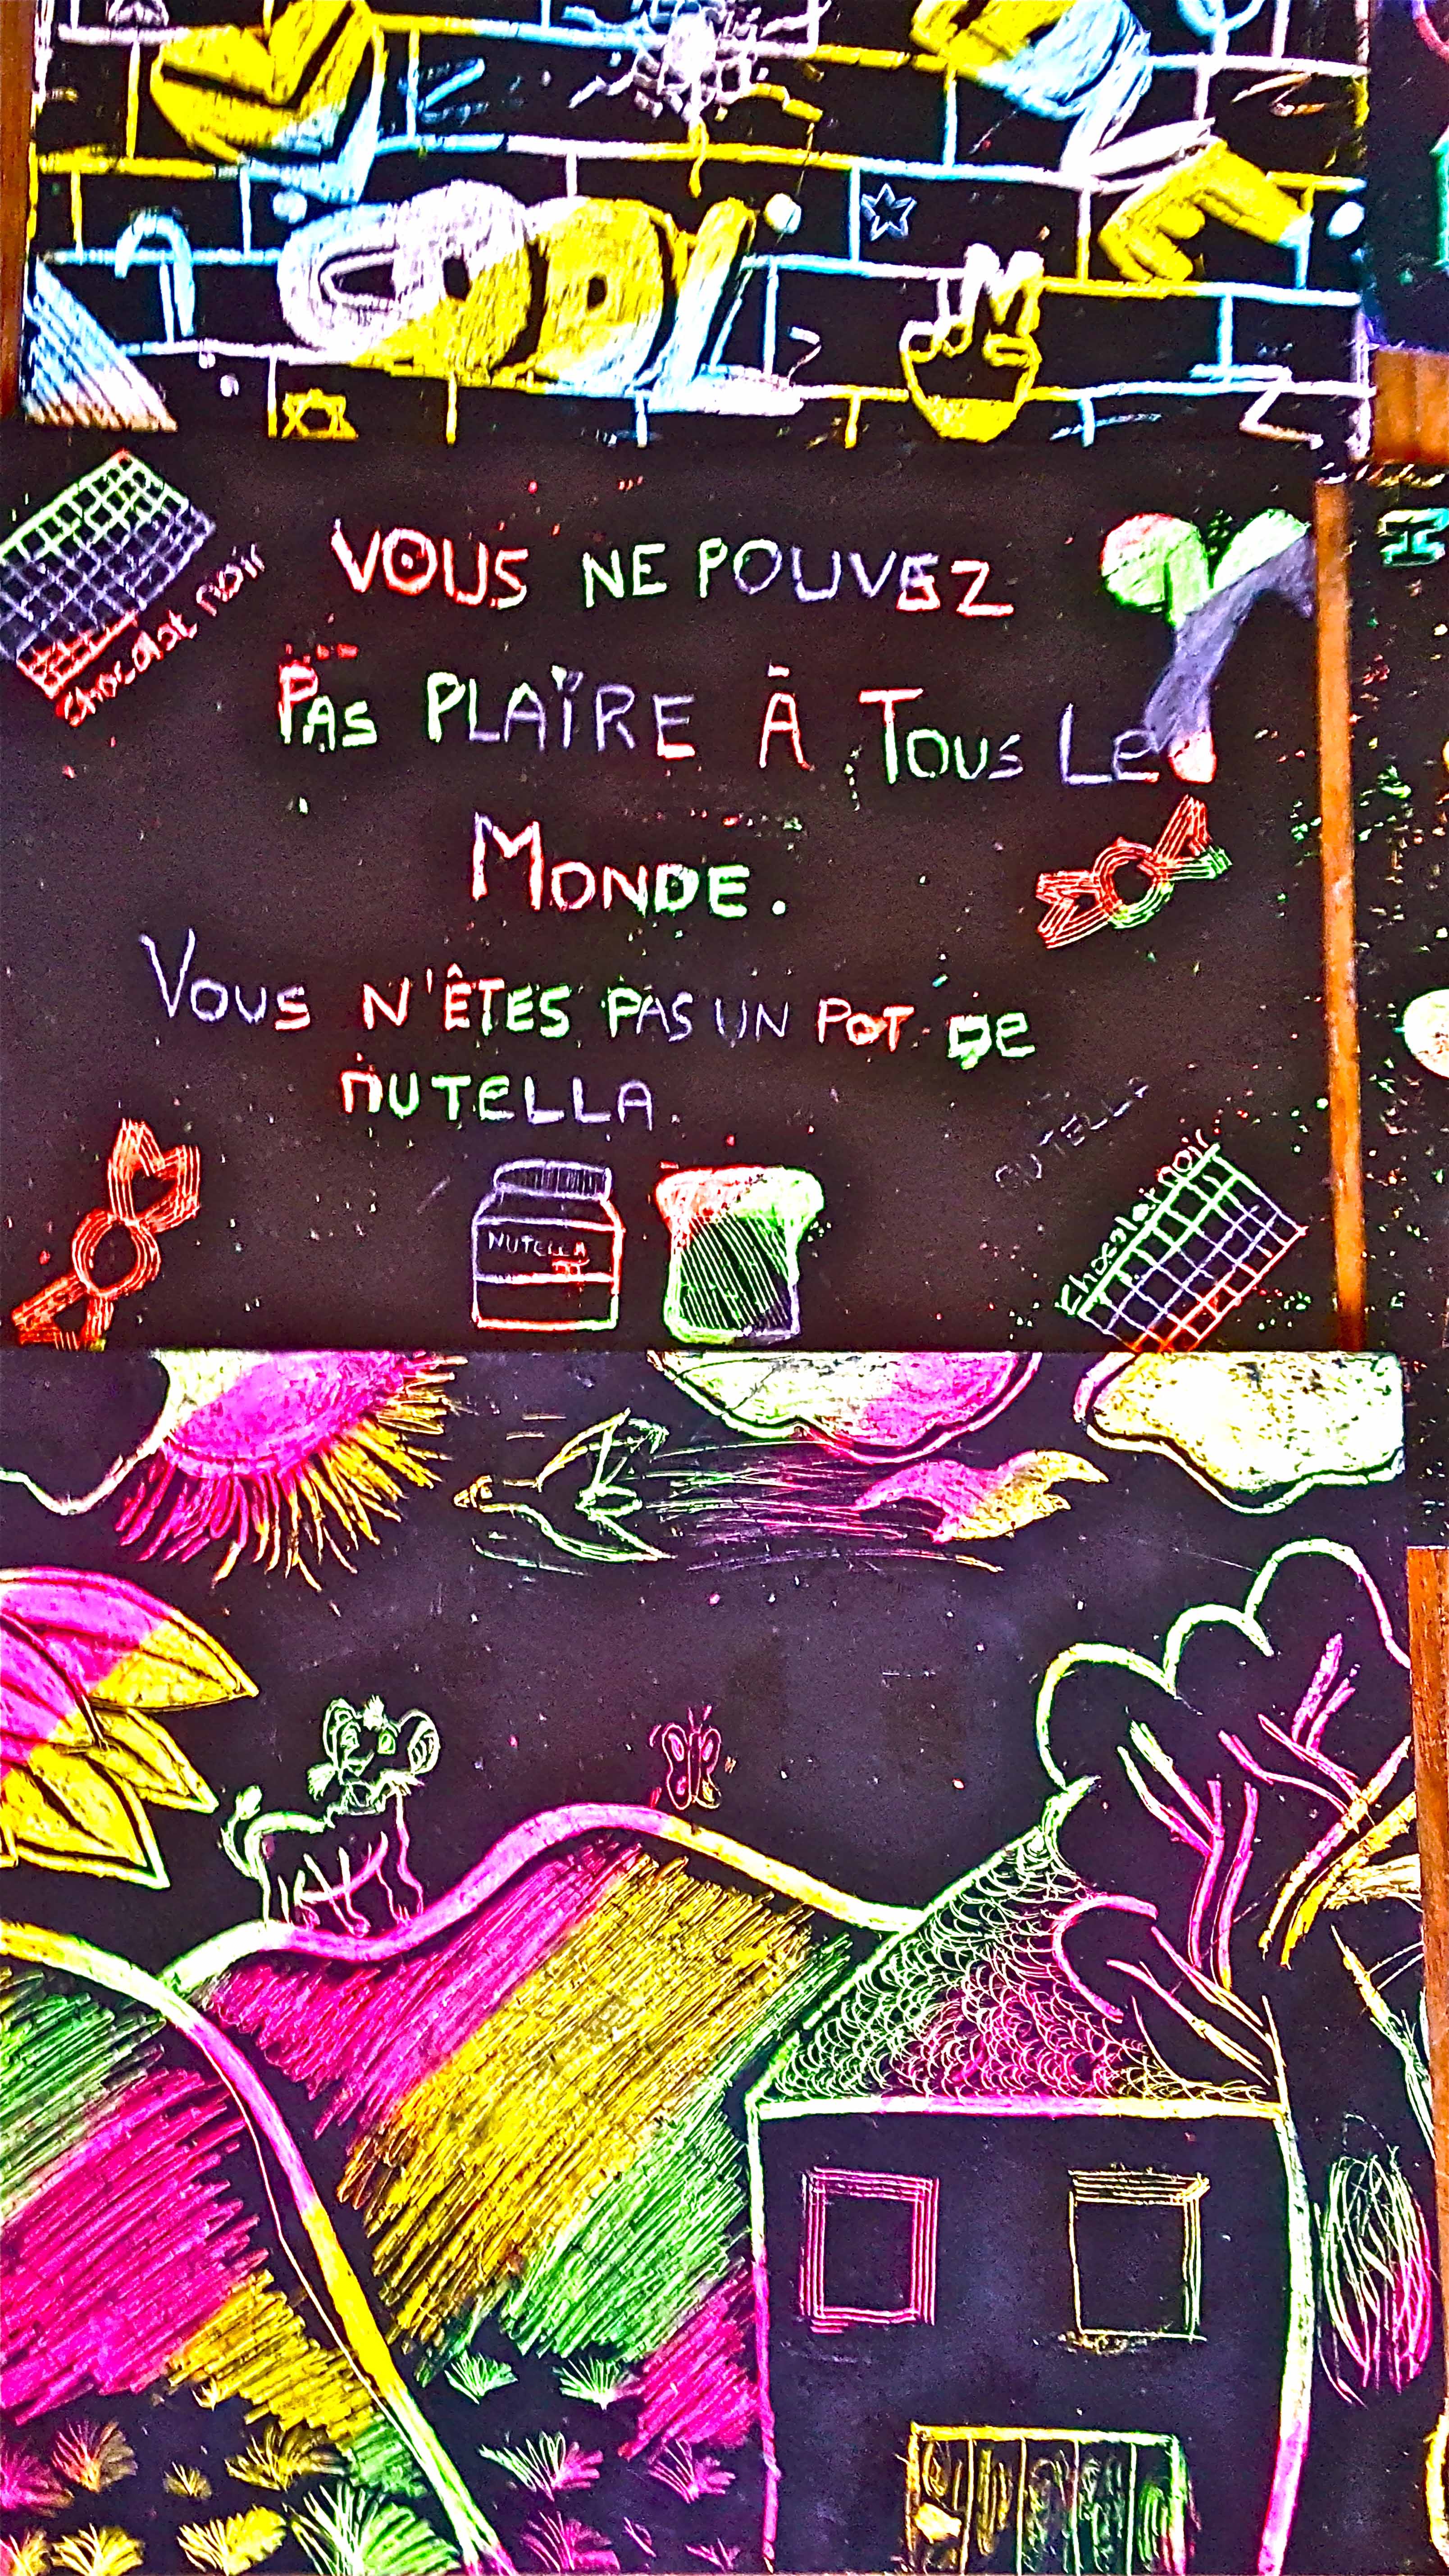 Chocolat noir
VOUS NE POUVEZ
PAS PLAÏRE À TOUS Le
MONDE.
VOUS N'ÊTES PAS UN POT De
nUTeLLA
NUTELLA
NUTELLA
Chocolat noir